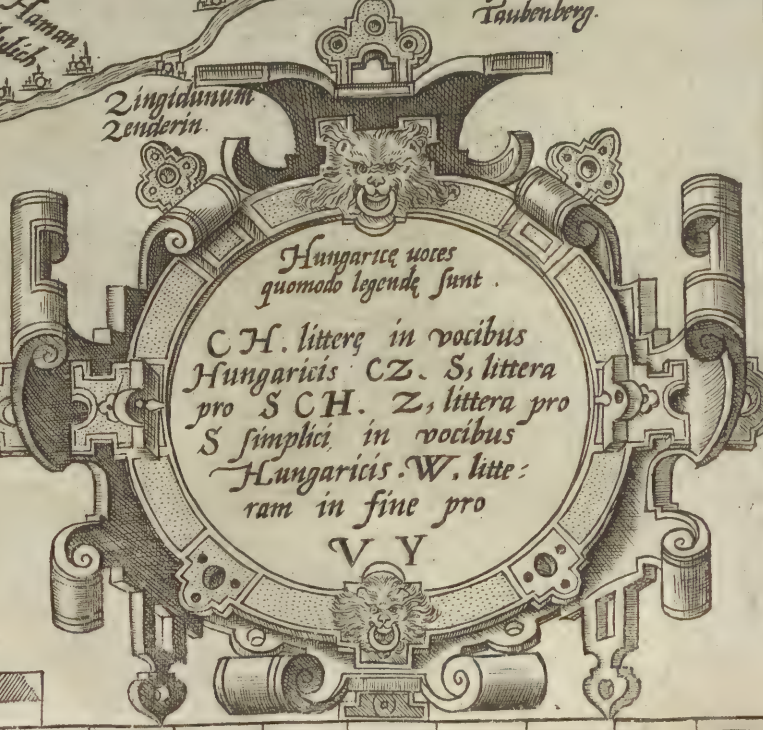 Haman
Taubenberg.
Zingidunum
Zenderin.
Hungaricę uoces
quomodo legendę sunt.
CH. litterę in vocibus
Hungaricis CZ. S, littera
pro SCH. Z, littera pro
S simplici in vocibus
Hungaricis. W. litte:
ram in fine pro
V Y